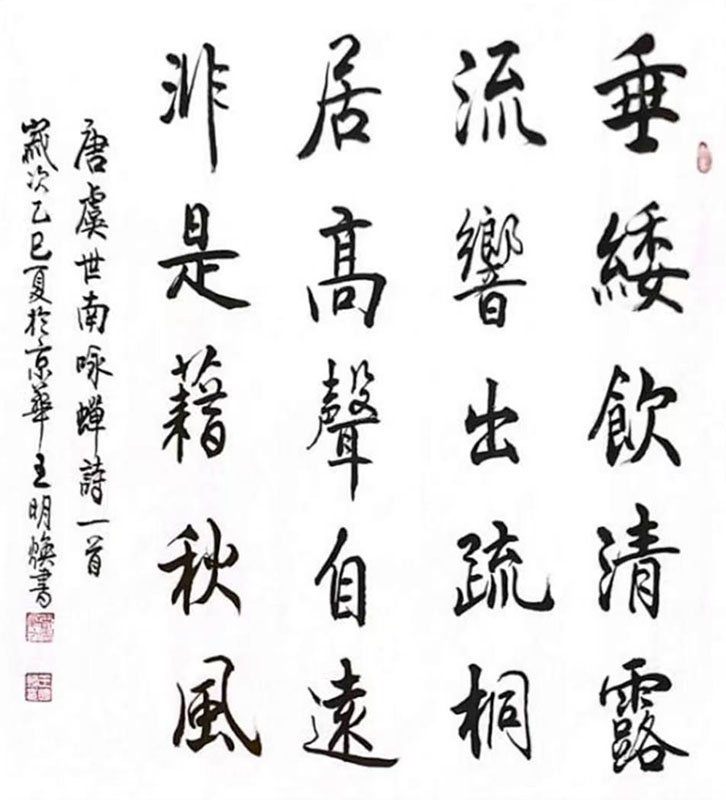 垂緌飲清露
流響出疏桐
居高聲自遠
非是藉秋風
唐虞世南咏蟬詩一首
歲次乙巳夏於京華王明煥書